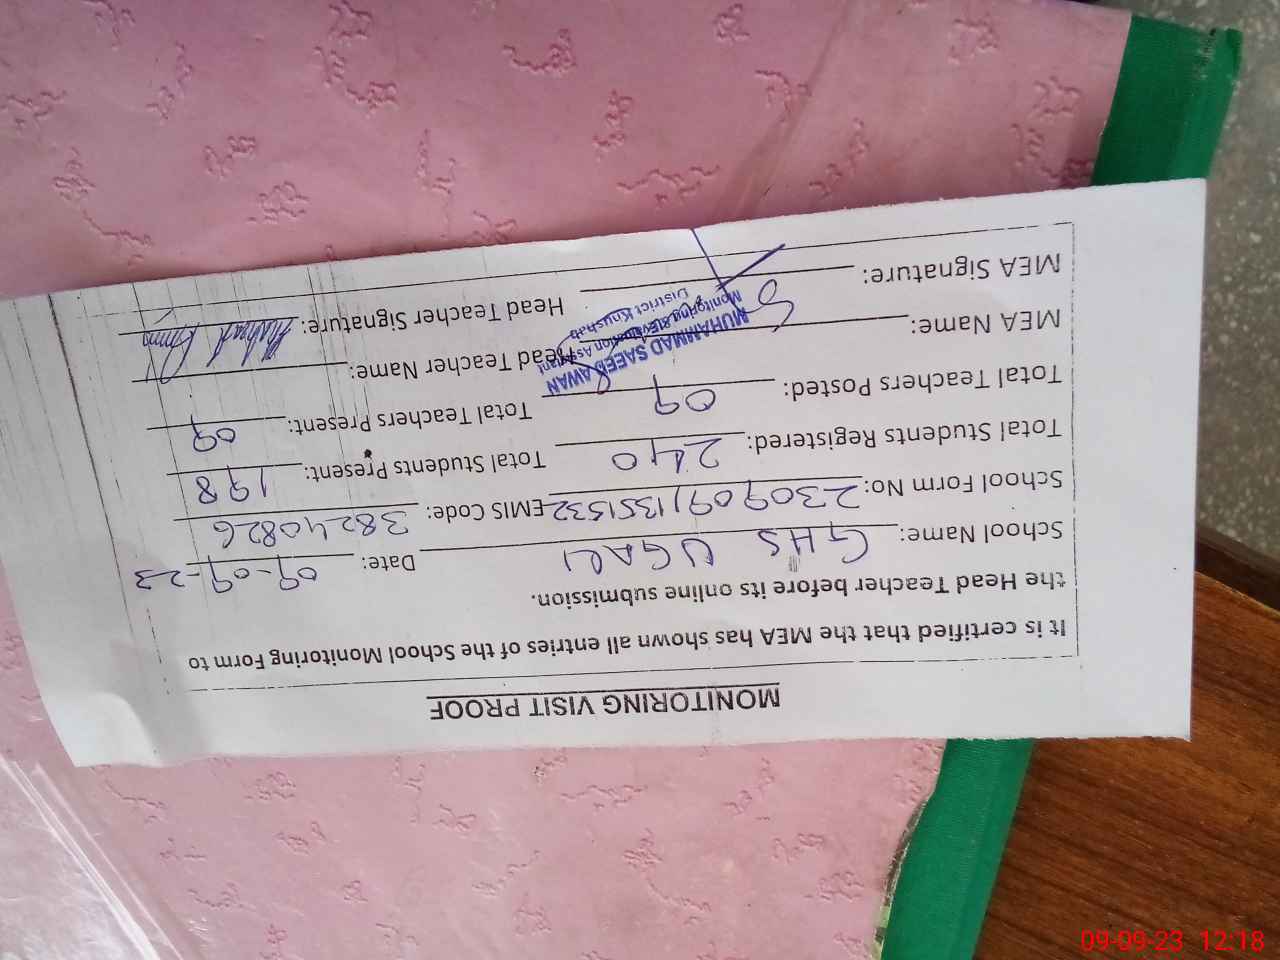 MONITORING VISIT PROOF
It is certified that the MEA has shown all entries of the School Monitoring Form to
the Head Teacher before its online submission.
School Name: GHS UGALI Date: 09-09-23
School Form No: 230909/1351532 EMIS Code: 38240826
Total Students Registered: 240 Total Students Present: 198
Total Teachers Posted: 09 Total Teachers Present: 09
MEA Name: Head Teacher Name:
MUHAMMAD SAEED AWAN
Monitoring & Evaluation Assistant
District Khushab
MEA Signature: Head Teacher Signature:
09-09-23 12:18